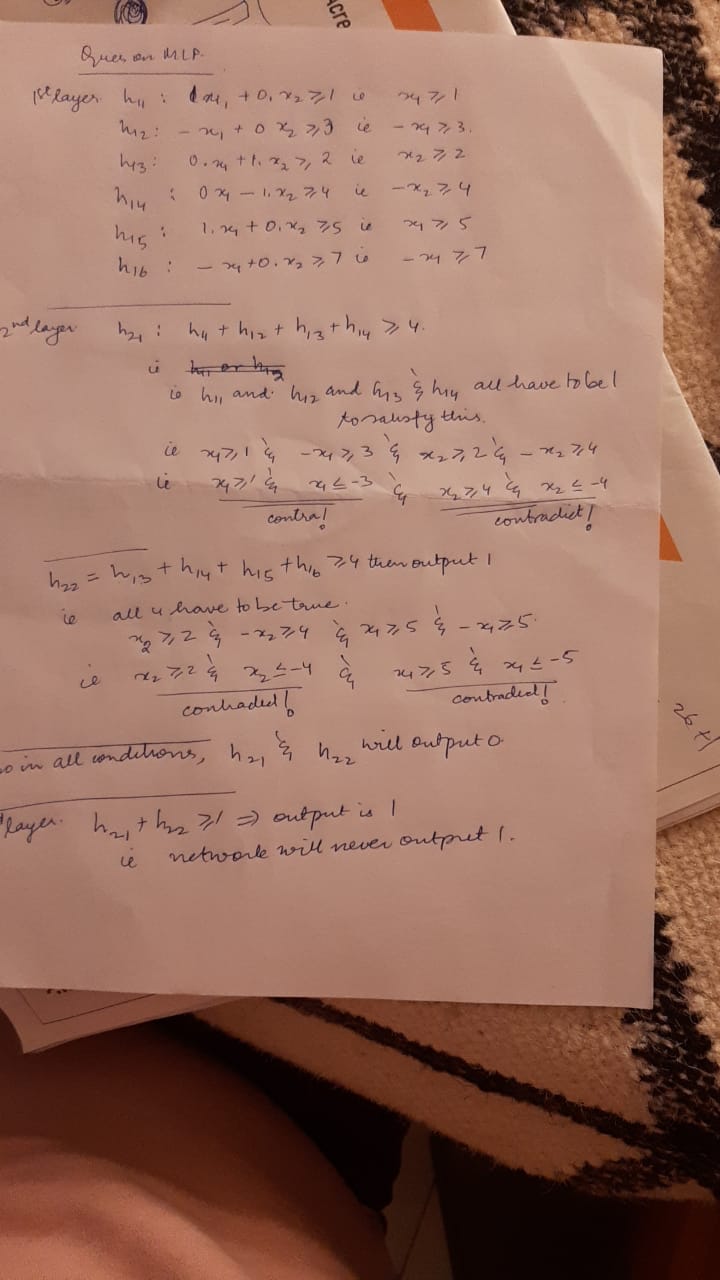 Acre
Ques on MLP.
1st layer h11 : 1x1, + 0, x2 ≥ 1 ie x1 ≥ 1
h12 : - x1 + 0 x2 ≥ 3 ie - x1 ≥ 3.
h13 : 0. x1 + 1. x2 ≥, 2 ie x2 ≥ 2
h14 : 0 x1 - 1. x2 ≥ 4 ie - x2 ≥ 4
h15 : 1. x1 + 0. x2 ≥ 5 ie x1 ≥ 5
h16 : - x1 + 0. x2 ≥ 7 ie - x1 ≥ 7
2nd layer h21 : h11 + h12 + h13 + h14 ≥ 4.
ie h11 or h12
ie h11 and h12 and h13 & h14 all have to be 1
to satisfy this.
ie x1 ≥ 1 & - x1 ≥ 3 & x2 ≥ 2 & - x2 ≥ 4
ie x1 ≥ 1 & x1 ≤ -3 & x2 ≥ 4 & x2 ≤ -4
contra! contradict!
h22 = h13 + h14 + h15 + h16 ≥ 4 then output 1
ie all 4 have to be true.
x2 ≥ 2 & - x2 ≥ 4 & x1 ≥ 5 & - x1 ≥ 5.
ie x2 ≥ 2 & x2 ≤ -4 & x1 ≥ 5 & x1 ≤ -5
contradict! contradict!
so in all conditions, h21 & h22 will output 0
layer. h21 + h22 ≥ 1 ⇒ output is 1
ie network will never output 1.